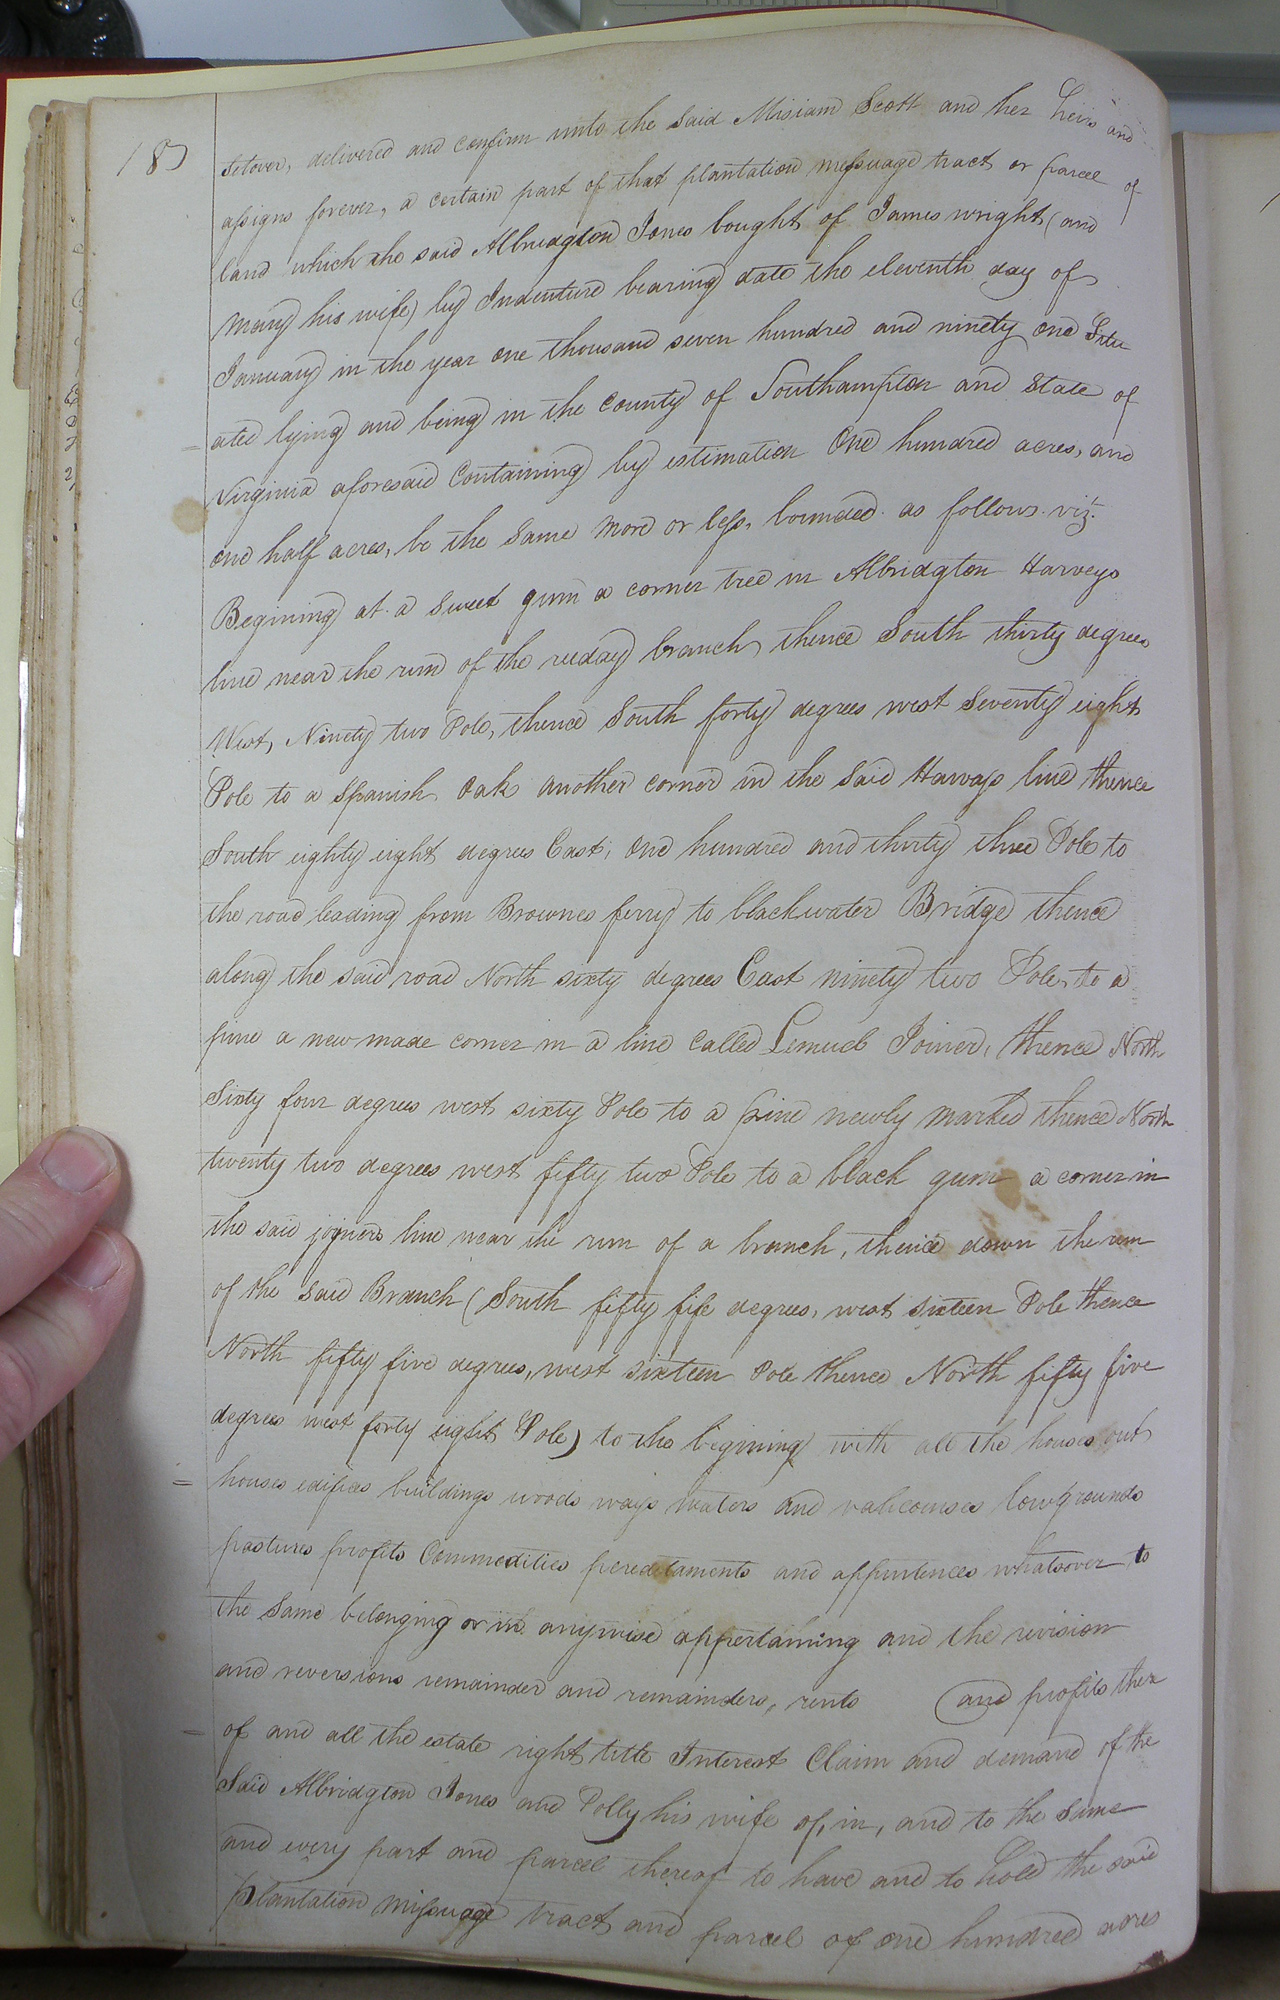 187
setover, delivered and confirm unto the said Misiam Scott and her heirs and
assigns forever, a certain part of that plantation messuage tract or parcel of
land which the said Albridgton Jones bought of James wright (and
Mary his wife) by Indenture bearing date the eleventh day of
January in the year one thousand seven hundred and ninety one Situ
=ated lying and being in the county of Southampton and State of
Virginia aforesaid Containing by estimation One hundred acres, and
one half acres, be the same more or less, bounded as follows. viz.
Begining at a sweet gum a corner tree in Albridgton Harveys
line near the run of the reeday branch, thence South thirty degrees
West, Ninety two Pole, thence South forty degrees west seventy eight
Pole to a Spanish Oak another corner in the said Harvays line thence
South eighty eight degrees East, one hundred and thirty three Pole to
the road leading from Brownes ferry to blackwater Bridge thence
along the said road North sixty degrees East ninety two Pole, to a
pine a new made corner in a line called Lemuel Joiner, thence North
Sixty four degrees west sixty Pole to a pine newly marked thence North
twenty two degrees west fifty two Pole to a black gum a corner in
the said joyners line near the run of a branch, thence down the run
of the said Branch (South fifty fife degrees, west sixteen Pole thence
North fifty five degrees, west sixteen Pole thence North fifty five
degrees west forty eight Pole) to the begining with all the houses out
=houses edifices buildings woods ways waters and valicourses lowgrounds
pastures profits Commodities peredetaments and appurtences whatsoover to
the same belonging or in anywise appertaining and the revision
and reversions remainder and remainders, rents and profits there
=of and all the estate right title Interest Claim and demand of the
Said Albridgton Jones and Polly his wife of, in, and to the same
and every part and parcel thereof to have and to hold the said
plantation misuage tract and parcel of one hundred acres